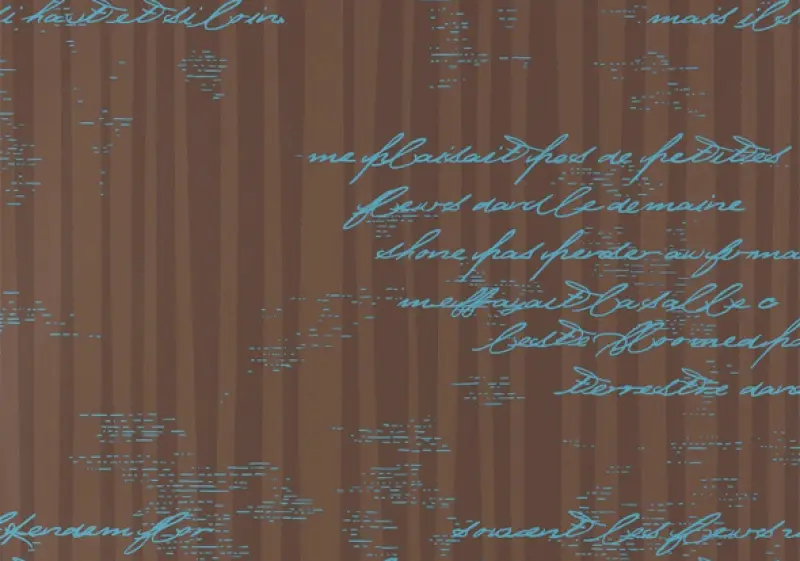 haut et si loin
mais ils
me plaisait pas de petites
fleurs dans le demaine
shone pas penser au forma
meffrayait la salle c
leste bloomed pa
terrestre dans
flor
souvent les fleurs